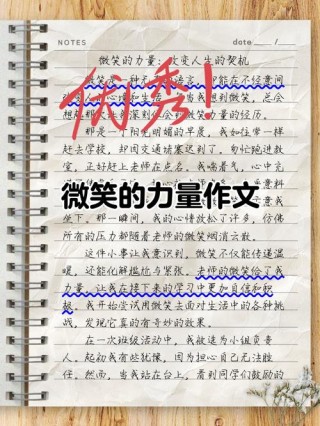 NOTES
date ___ / ___
微笑的力量:改变人生的契机
微笑是一种无
能在不经意间
优秀!
想
微笑的力量的经历。
那是一个阳光明媚的早晨,我如往常一样
赶去学校,却因交通堵塞迟到了。匆忙跑进教
室,正好赶上老师在点名。我喘着气,心中充
微笑的力量作文
坐下。那一瞬间,我的心情放松了许多,仿佛
所有的压力都随着老师的微笑烟消云散。
这件小事让我意识到,微笑不仅能传递温
暖,还能化解尴尬与紧张。老师的微笑给了我
力量,让我在接下来的学习中更加自信和积
极。我开始尝试用微笑去面对生活中的各种挑
战,发现它真的有奇妙的效果。
在一次班级活动中,我被选为小组负责
人。起初我有些犹豫,因为担心自己无法胜
任。然而,当我站在台上,看到同学们鼓励的